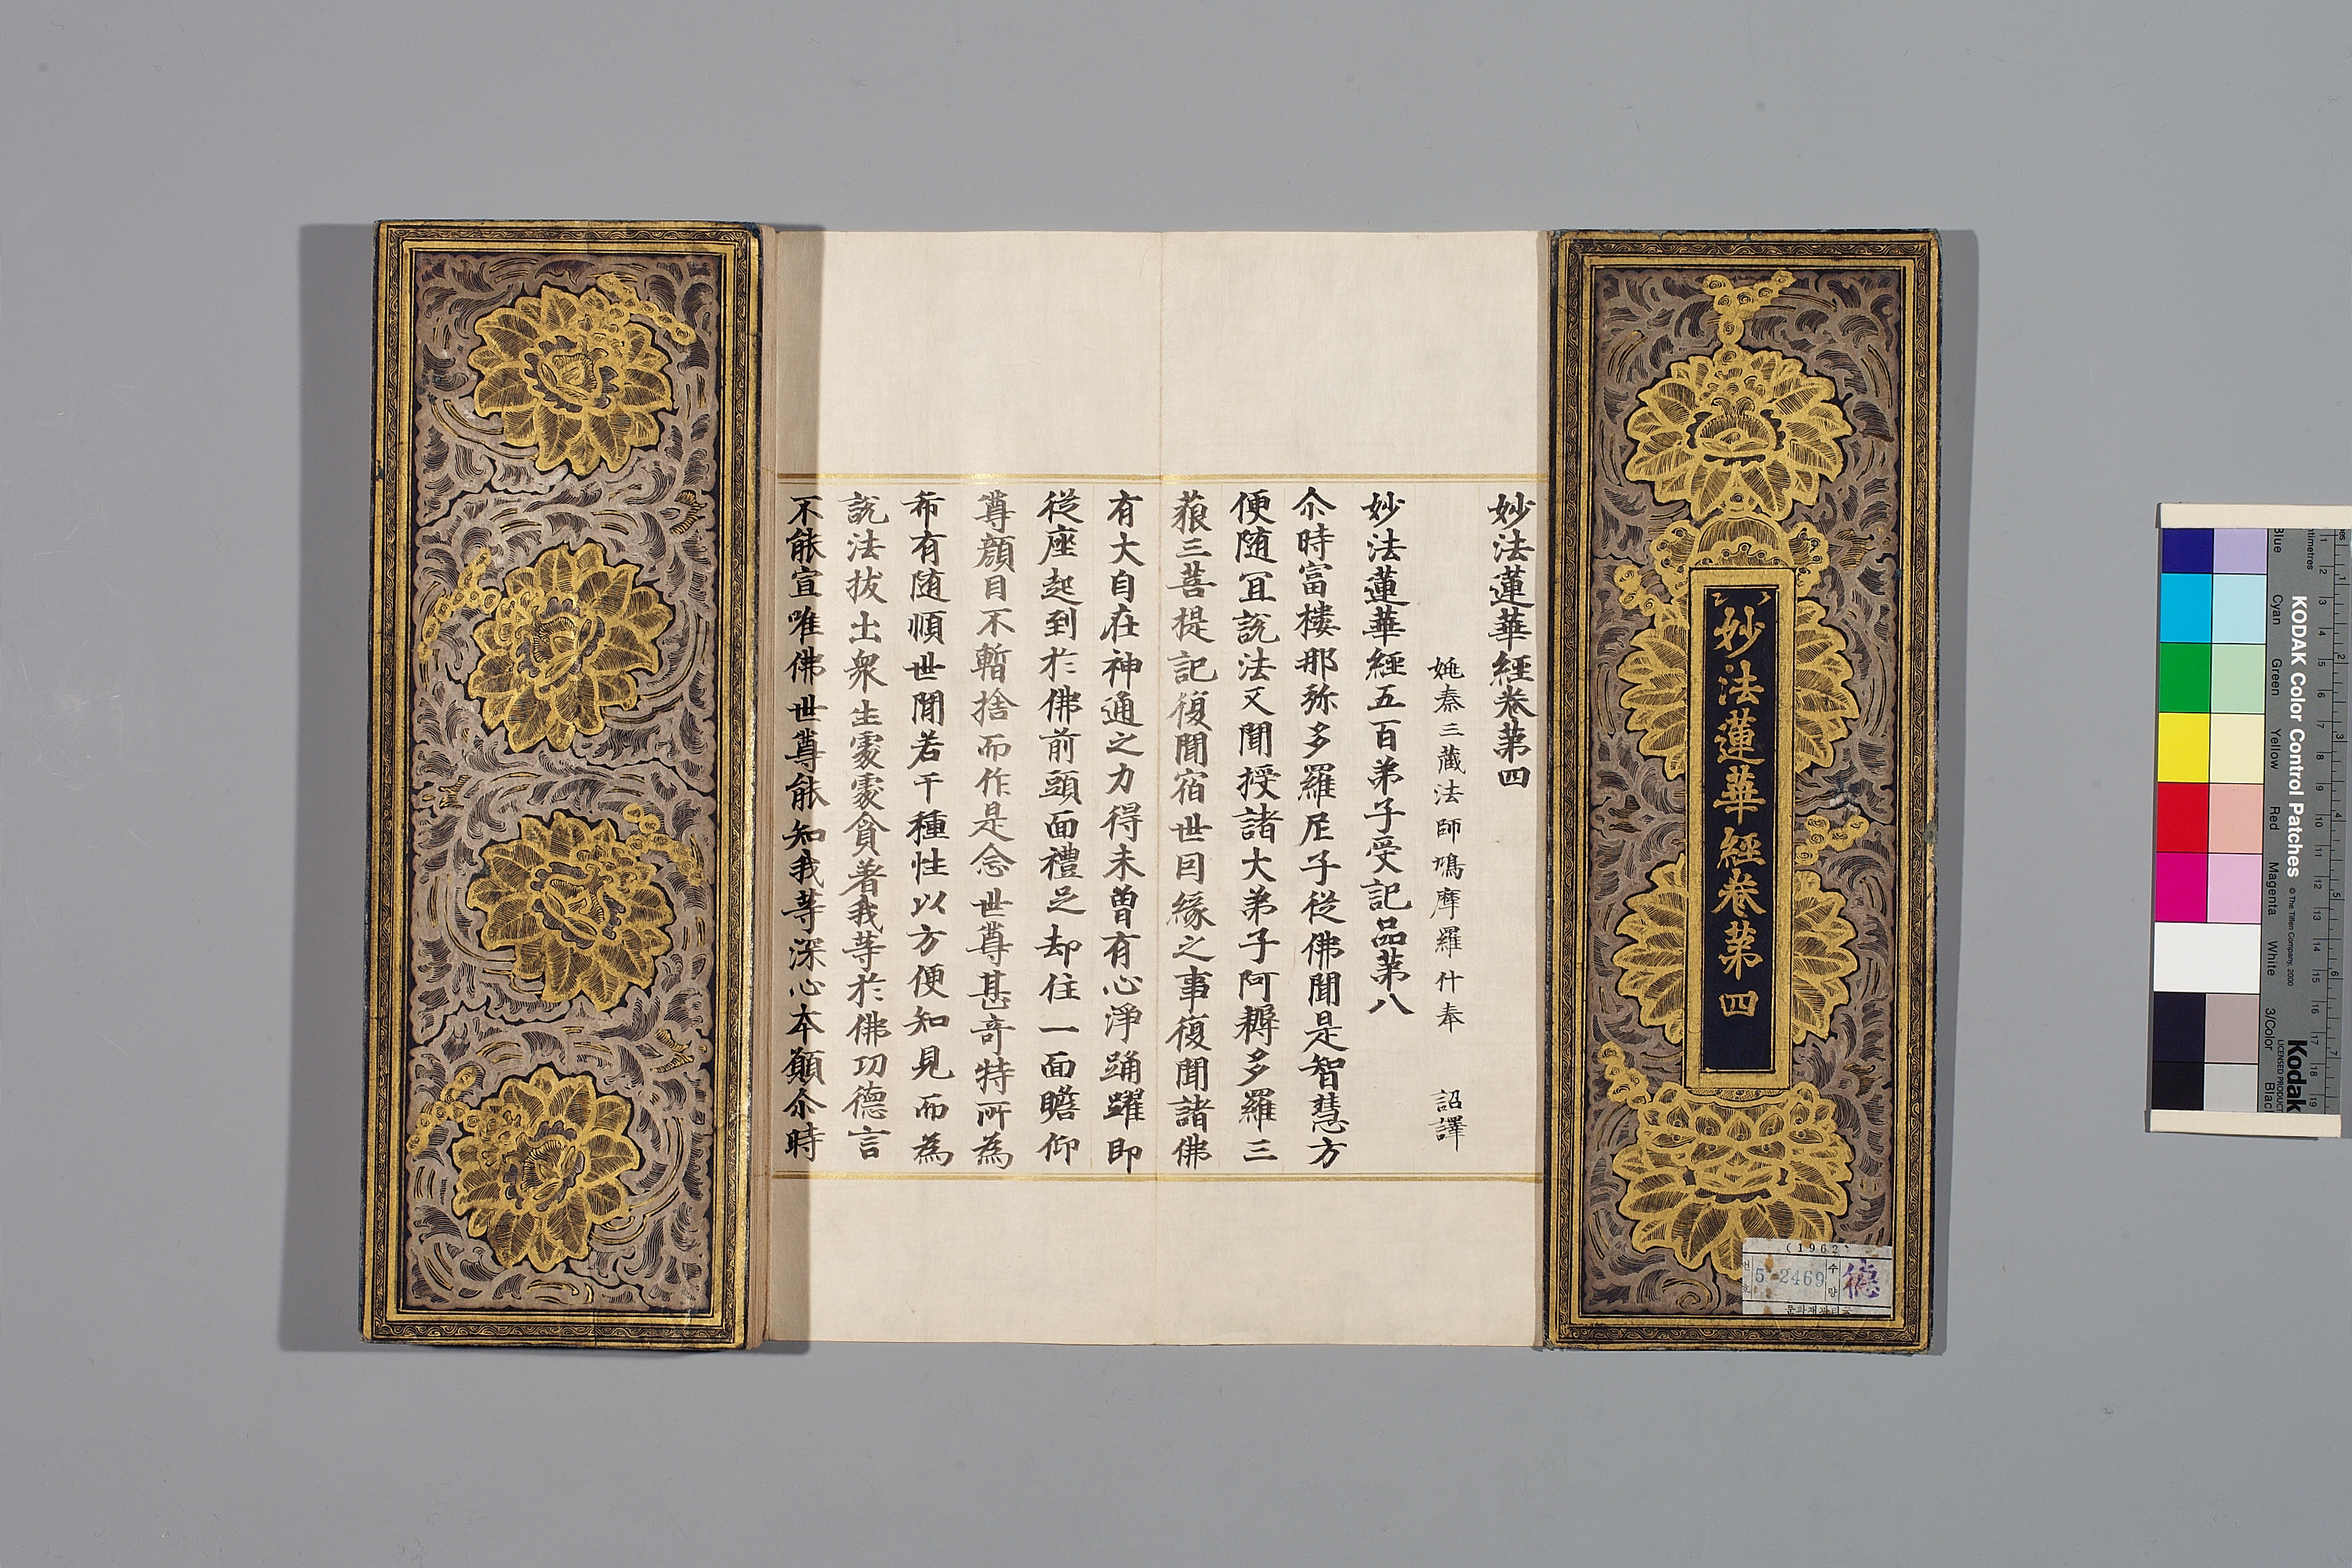 妙法蓮華經卷第四
妙法蓮華經卷第四
姚秦三藏法師鳩摩羅什奉 詔譯
妙法蓮華經五百弟子受記品第八
尒時富樓那弥多羅尼子従佛聞是智慧方
便随冝說法又聞授諸大弟子阿耨多羅三
藐三菩提記復聞宿世因緣之事復聞諸佛
有大自在神通之力得未曽有心淨踊躍即
従座起到於佛前頭面禮足却住一面瞻仰
尊顔目不暫捨而作是念世尊甚奇特所為
希有随順世閒若干種性以方便知見而為
說法拔出衆生處處貪著我等於佛功德言
不能宣唯佛世尊能知我等深心本願尒時
(1962)
5-2469
수량
德
문화재관리국
KODAK Color Control Patches
© The Tiffen Company, 2000
Kodak
LICENSED PRODUCT
Blue
Cyan
Green
Yellow
Red
Magenta
White
3/Color
Black
1 2 3 4 5 6 7 8 9 10 11 12 13 14 15 16 17 18 19
1 2 3 4 5 6 7